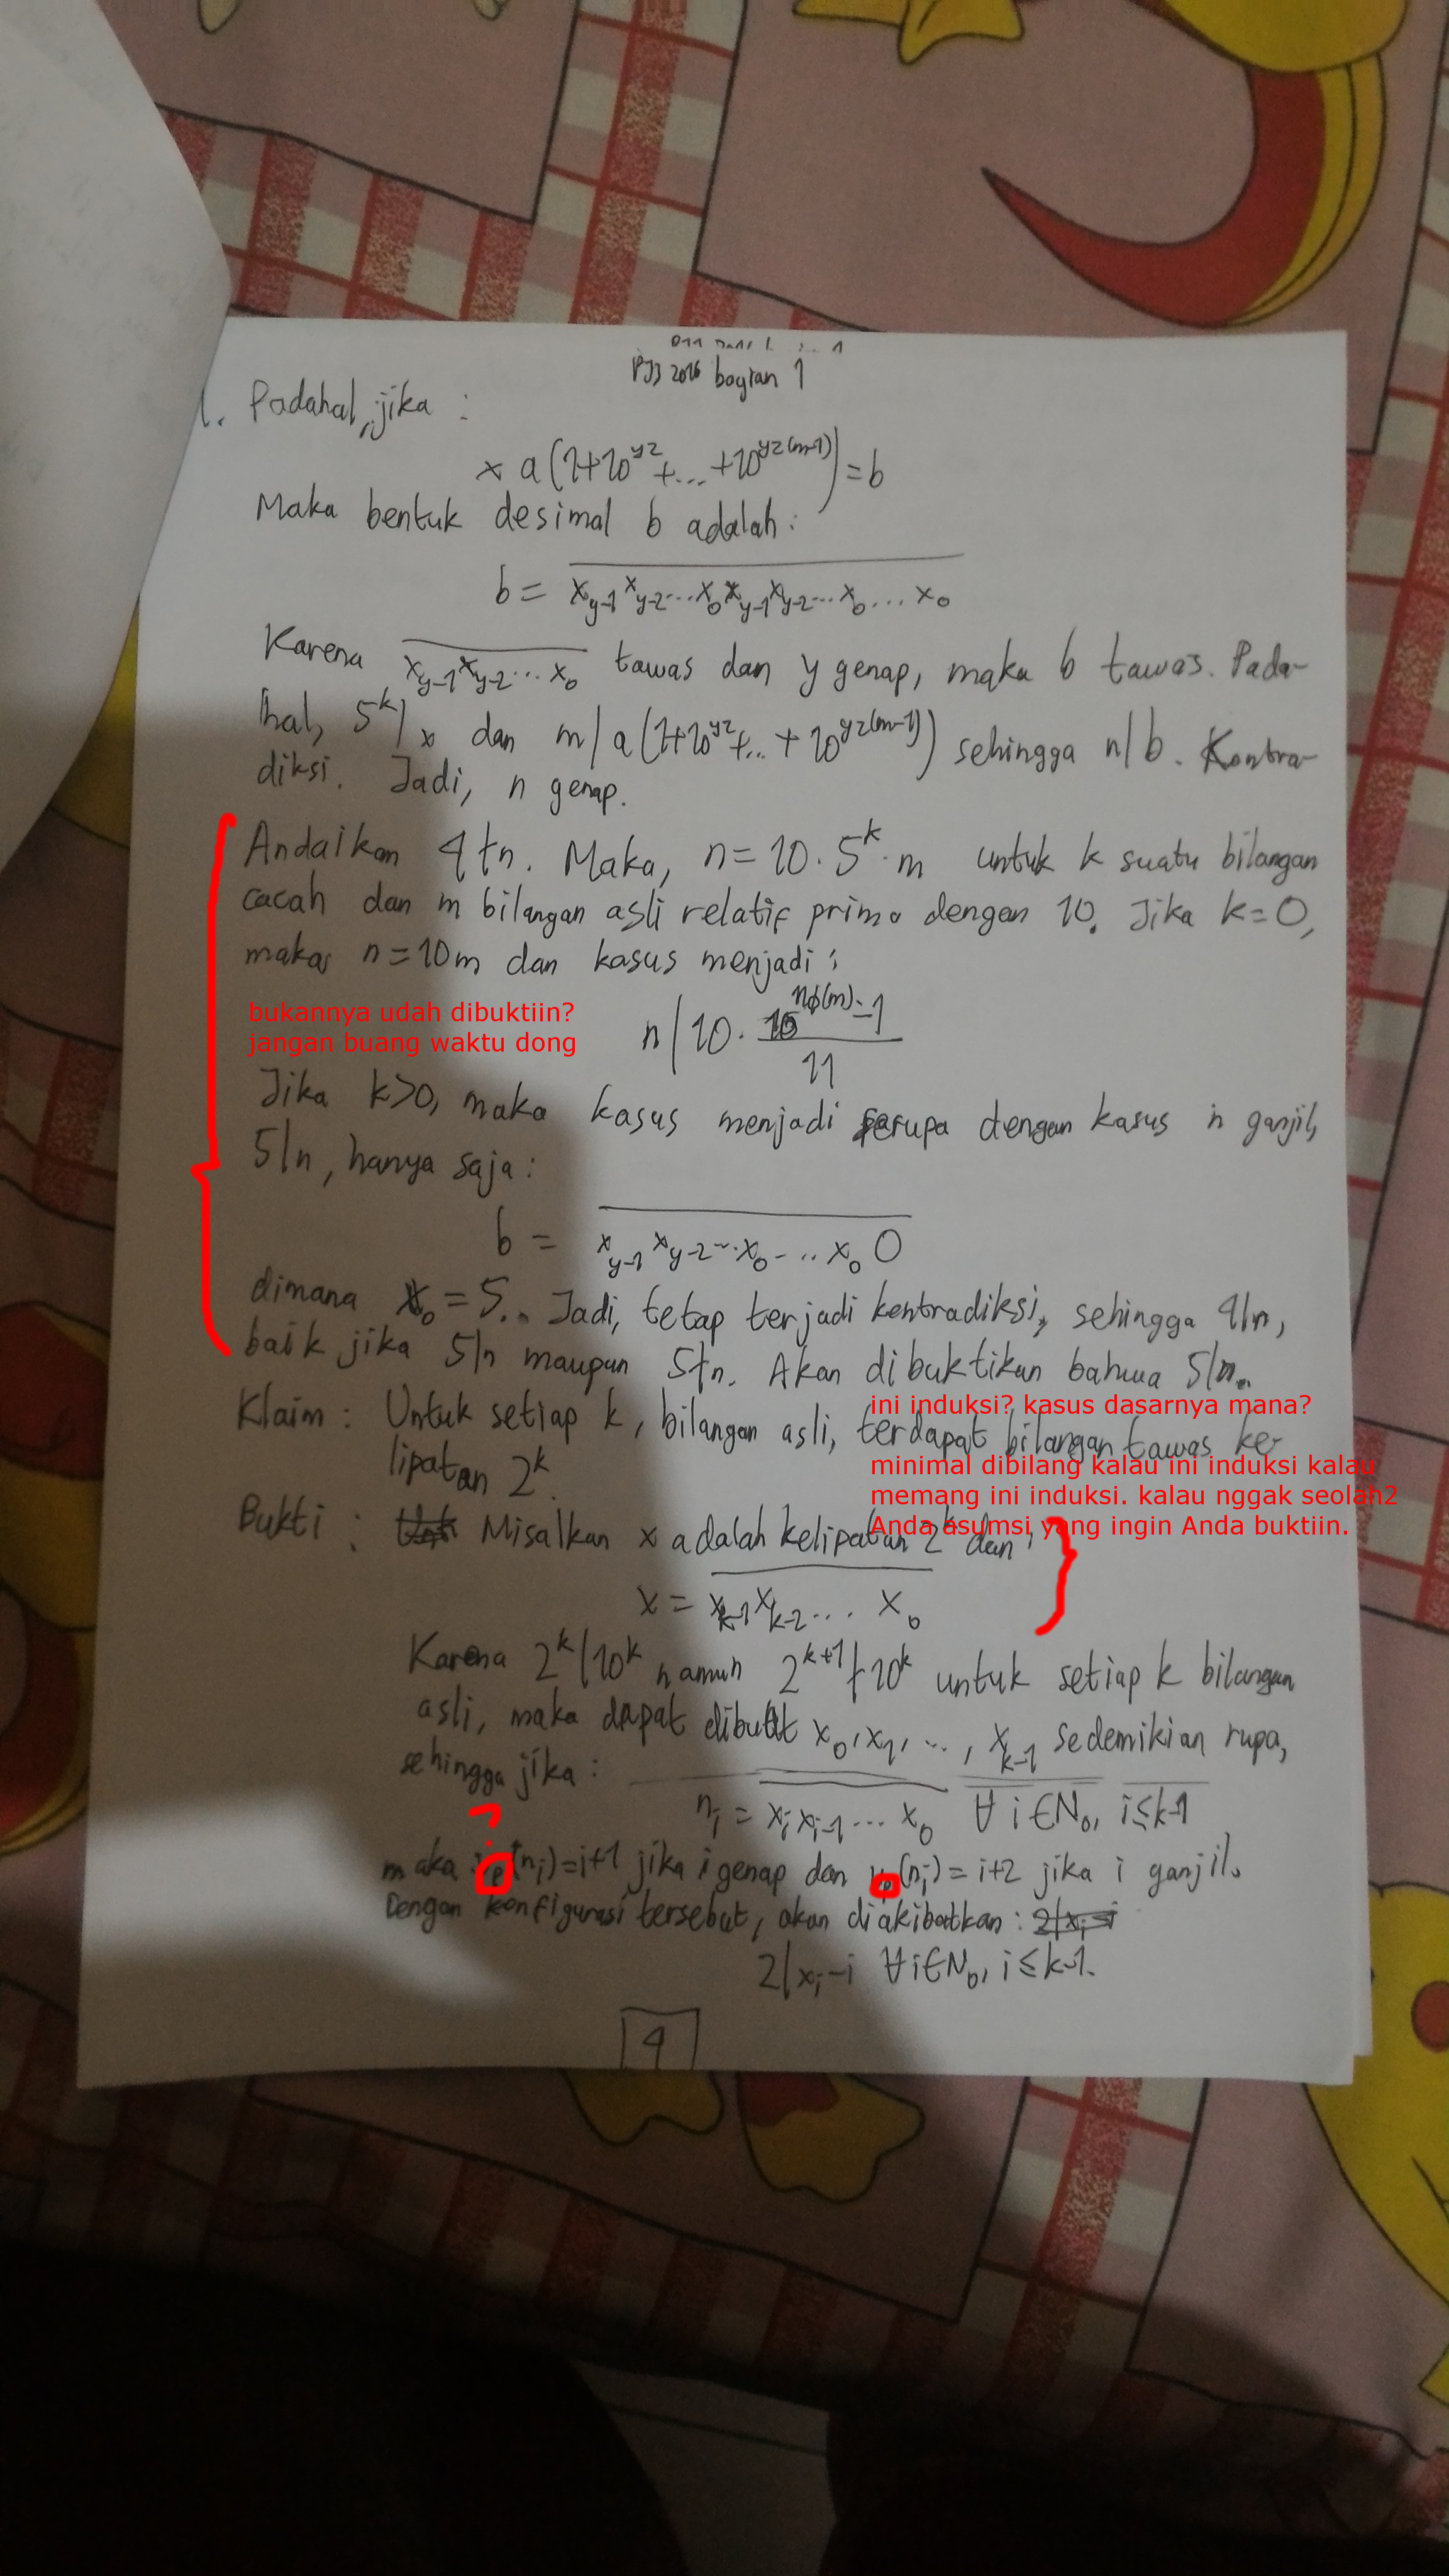 PJJ 2016 bagian 1
1. Padahal, jika :
x a(1+10^{yz}+...+10^{yz(m-1)})=b
Maka bentuk desimal b adalah:
b = \overline{x_{y-1}x_{y-2}...x_0x_{y-1}x_{y-2}...x_0...x_0}
Karena \overline{x_{y-1}x_{y-2}...x_0} tawas dan y genap, maka b tawas. Pada-
hal, 5^k|x dan m|a(1+10^{yz}+...+10^{yz(m-1)}) sehingga n|b. Kontra-
diksi. Jadi, n genap.
Andaikan 4∤n. Maka, n=10·5^k·m untuk k suatu bilangan
cacah dan m bilangan asli relatif prima dengan 10. Jika k=0,
maka n=10m dan kasus menjadi:
bukannya udah dibuktiin?
jangan buang waktu dong
n|10·\frac{10^{nϕ(m)}-1}{11}
Jika k>0, maka kasus menjadi serupa dengan kasus n ganjil,
5|n, hanya saja:
b = \overline{x_{y-1}x_{y-2}...x_0...x_0 0}
dimana x_0=5. Jadi, tetap terjadi kontradiksi, sehingga 4|n,
baik jika 5|n maupun 5∤n. Akan dibuktikan bahwa 5|n.
ini induksi? kasus dasarnya mana?
minimal dibilang kalau ini induksi kalau
memang ini induksi. kalau nggak seolah2
Anda asumsi yang ingin Anda buktiin.
Klaim : Untuk setiap k, bilangan asli, terdapat bilangan tawas ke-
lipatan 2^k.
Bukti : Misalkan x adalah kelipatan 2^k dan :
x = \overline{x_{k-1}x_{k-2}...x_0}
Karena 2^k|10^k namun 2^{k+1}∤10^k untuk setiap k bilangan
asli, maka dapat dibuat x_0,x_1,...,x_{k-1} sedemikian rupa,
sehingga jika:
n_i = \overline{x_ix_{i-1}...x_0} ∀ i∈N_0, i≤k-1
?
maka v_p(n_i)=i+1 jika i genap dan v_p(n_i)=i+2 jika i ganjil.
Dengan konfigurasi tersebut, akan diakibatkan:
2|x_i-i ∀i∈N_0, i≤k-1.
4